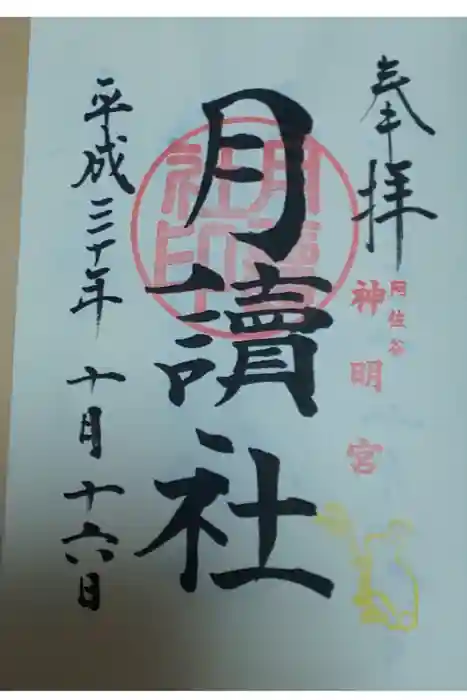 奉拝
阿佐谷
神明宮
月讀社
月讀社印
平成三十年十月十六日